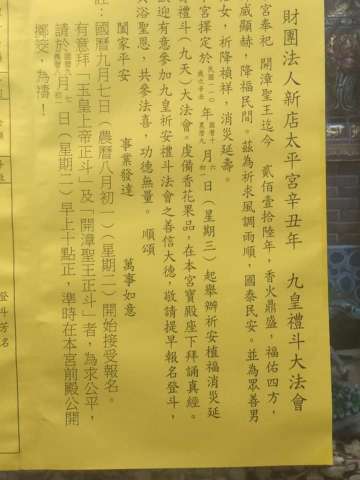 財團法人新店太平宮辛丑年 九皇禮斗大法會
宮奉祀 開漳聖王迄今 貳佰壹拾陸年，香火鼎盛，福佑四方，
威顯赫、降福民間。茲為祈求風調雨順，國泰民安。並為眾善男
女，祈降禎祥，消災延壽。
宮擇定於 歲次辛丑 年 國曆十 農曆九 月 六 初一 日（星期三）起舉辦祈安植福消災延
禮斗（九天）大法會。虔備香花果品，在本宮寶殿座下拜誦真經。
迎有意參加九皇祈安禮斗法會之善信大德，敬請提早報名登斗，
浴聖恩，共參法喜，功德無量。 順頌
闔家平安 事業發達 萬事如意
註：國曆九月七日（農曆八月初一）（星期二）開始接受報名。
有意拜「玉皇上帝正斗」及「開漳聖王正斗」者，為求公平，
請於 月 日（星期二）早上十點正，準時在本宮前殿公開
擲筊，為禱！
登斗芳名